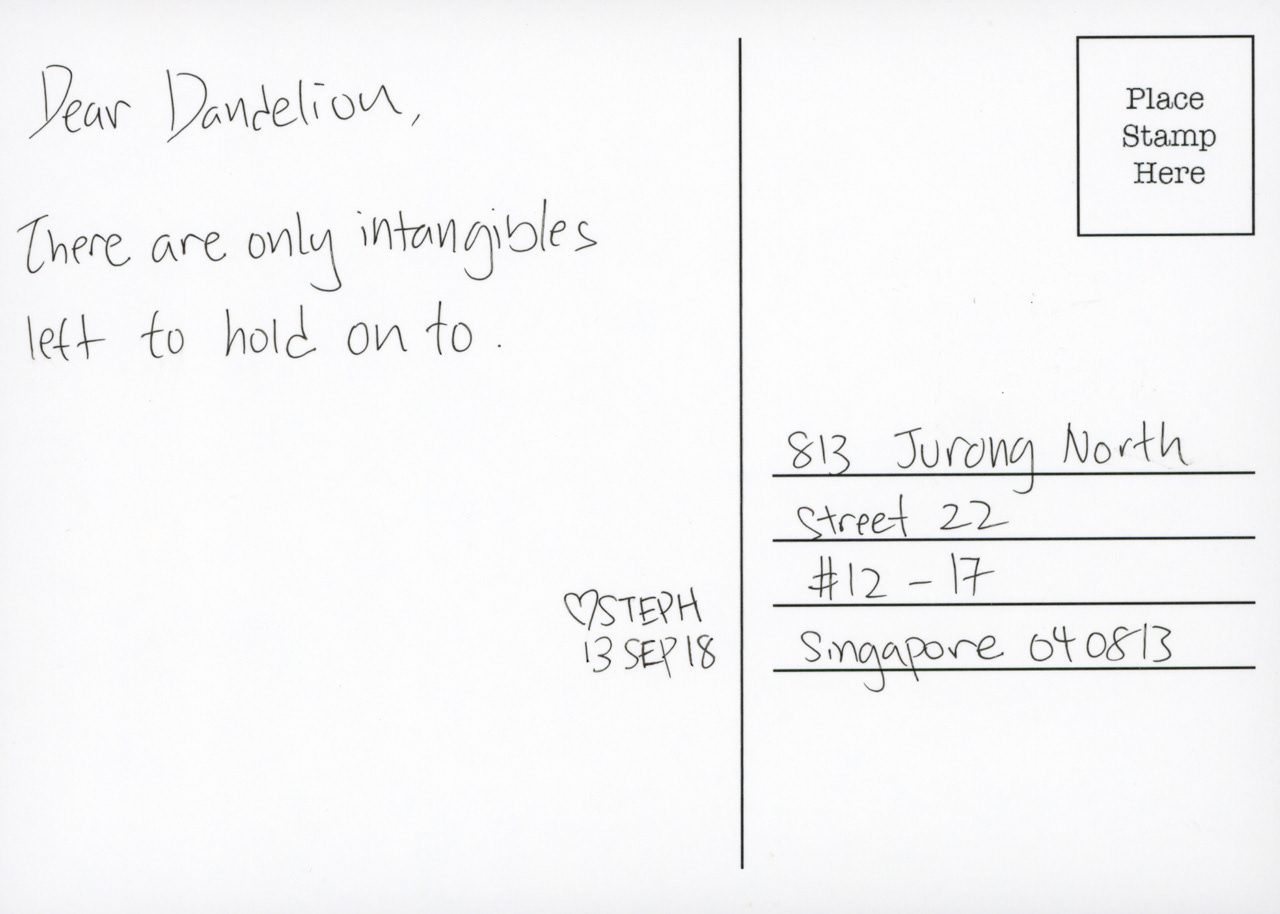 Dear Dandelion,
There are only intangibles
left to hold on to.
♡STEPH
13 SEP 18
Place
Stamp
Here
813 Jurong North
Street 22
#12-17
Singapore 040813